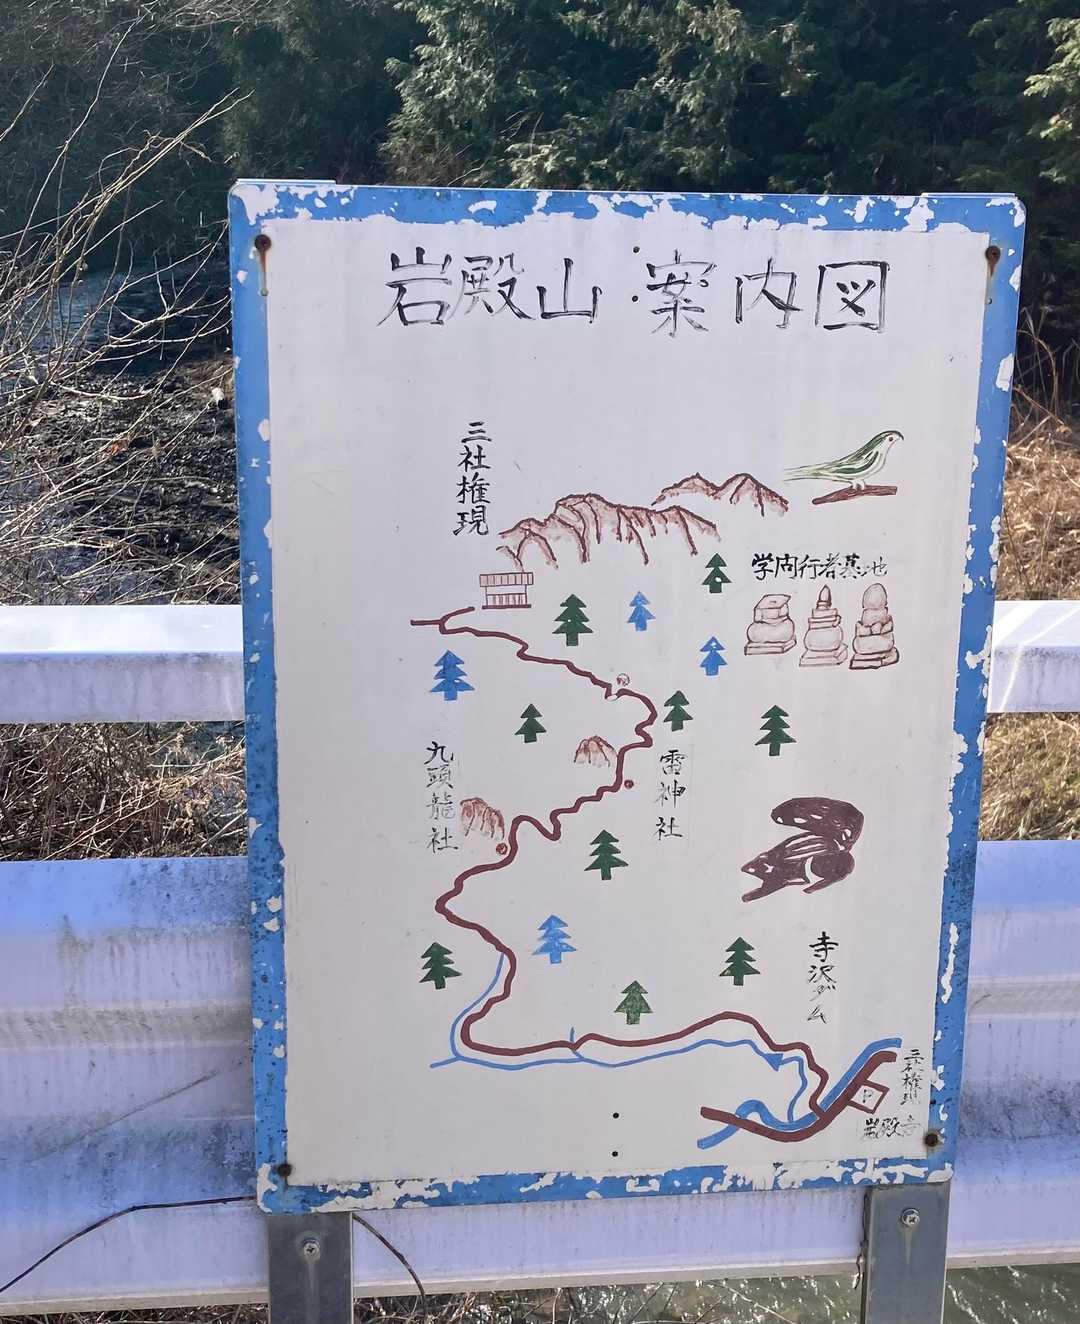 岩殿山 案内図
三社権現
学問行者墓地
九頭龍社
雷神社
寺沢ダム
三社権現
岩殿寺
P